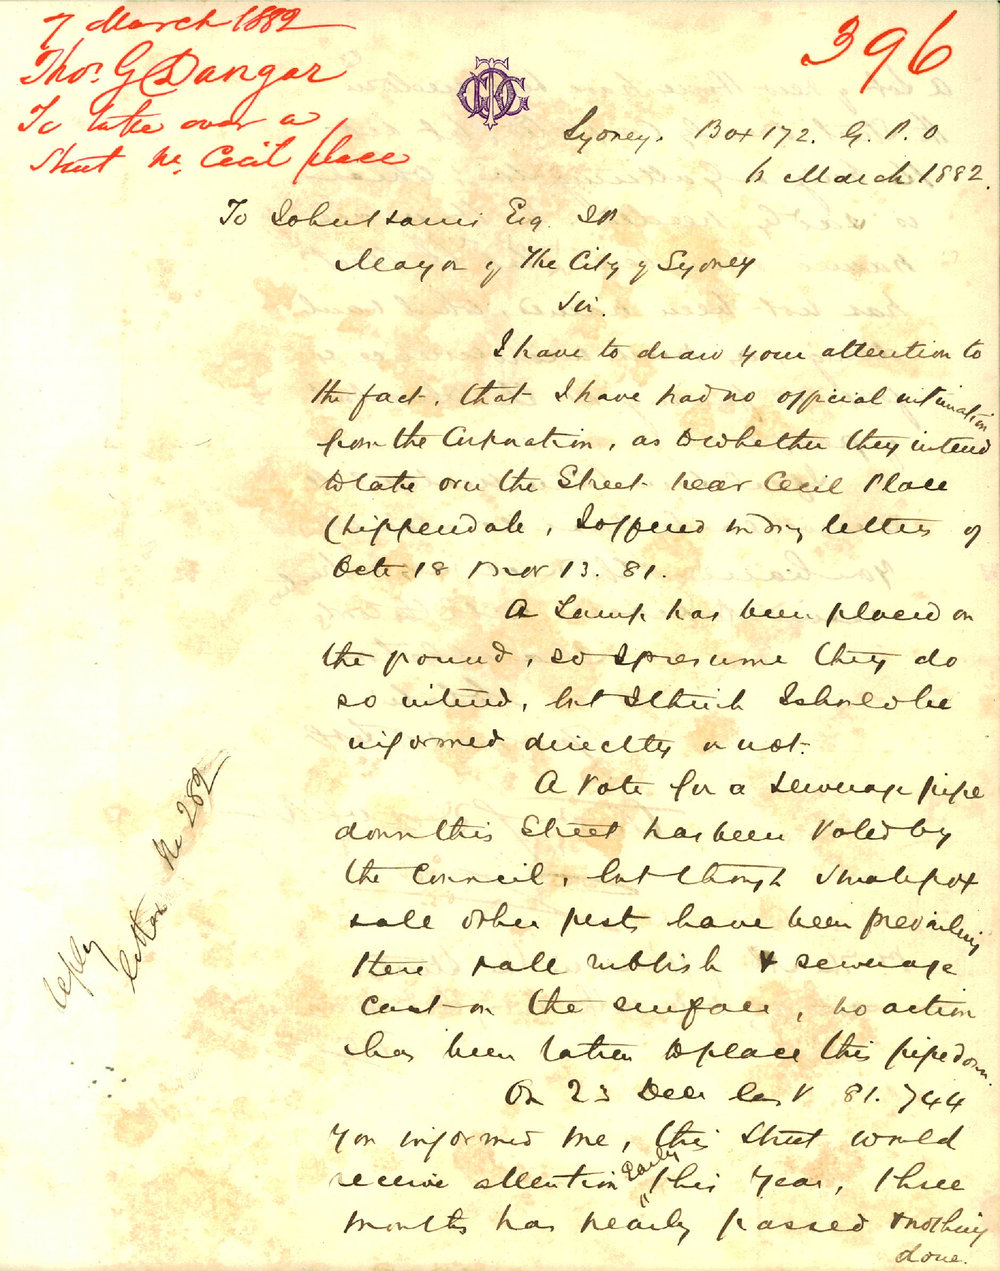 7 March 1882
Thos. G Dangar
To take over a
Street nr. Cecil place
396
Sydney. Box 172. G. P. O
6 March 1882.
To John Harris Esq. J P
Mayor of The City of Sydney
Sir.
I have to draw your attention to
the fact, that I have had no official intimation
from the Corporation, as to whether they intend
to take over the Street near Cecil Place
Chippendale, I offered in my letters of
Octr 18 & Novr 13. 81.
A Lamp has been placed on
the ground, so I presume they do
so intend, but I think I should be
informed directly or not.
A Vote for a Sewerage pipe
down this Street has been Voted by
the Council, but though Smallpox
& all other pests have been prevailing
there & all rubbish & sewerage
cast on the surface, no action
has been taken to place this pipe down.
On 23 Decr last 81. 744
you informed me, this Street would
receive attention early this Year, three
months has nearly passed & nothing
done.
reply
letter No 282